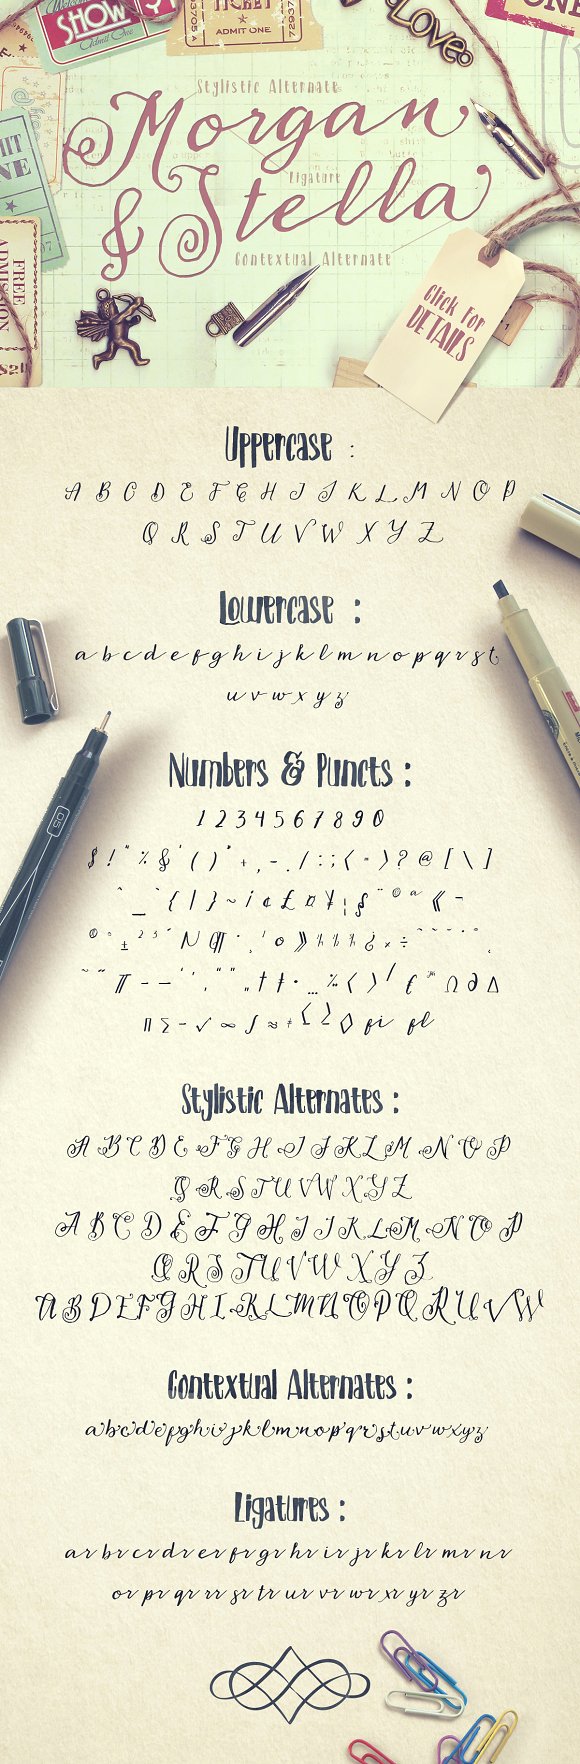 SHOW
Admit One
TICKET
ADMIT ONE
Love
ONE
Stylistic Alternate
Morgan
Ligature
& Stella
Contextual Alternate
FREE
ADMISSION
Click For
DETAILS
Uppercase :
A B C D E F G H I J K L M N O P
Q R S T U V W X Y Z
Lowercase :
a b c d e f g h i j k l m n o p q r s t
u v w x y z
Numbers & Puncts :
1 2 3 4 5 6 7 8 9 0
$ ! " % & ' ( ) * + , - . / : ; < = > ? @ [ \ ]
^ _ ` { | } ~ ¡ ¢ £ ¤ ¥ ¦ § ¨ © ª « -
fi fl
05
Stylistic Alternates :
A B C D E F G H I J K L M N O P
Q R S T U V W X Y Z
A B C D E F G H I J K L M N O P
Q R S T U V W X Y Z
A B D E F G H I K L M N O P Q R U V W
Contextual Alternates :
a b c d e f g h i j k l m n o p q r s t u v w x y z
Ligatures :
ar br cr dr er fr gr hr ir jr kr lr mr nr
or pr qr rr sr tr ur vr wr xr yr zr